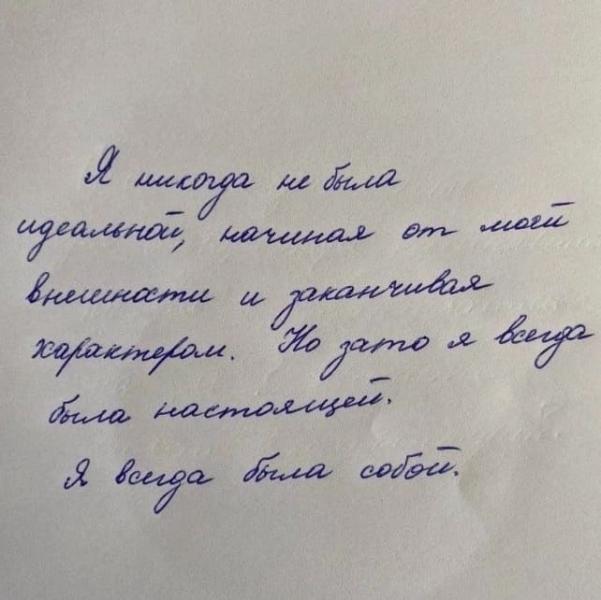 Я никогда не была
идеальной, начиная от моей
внешности и заканчивая
характером. Но зато я всегда
была настоящей.
Я всегда была собой.